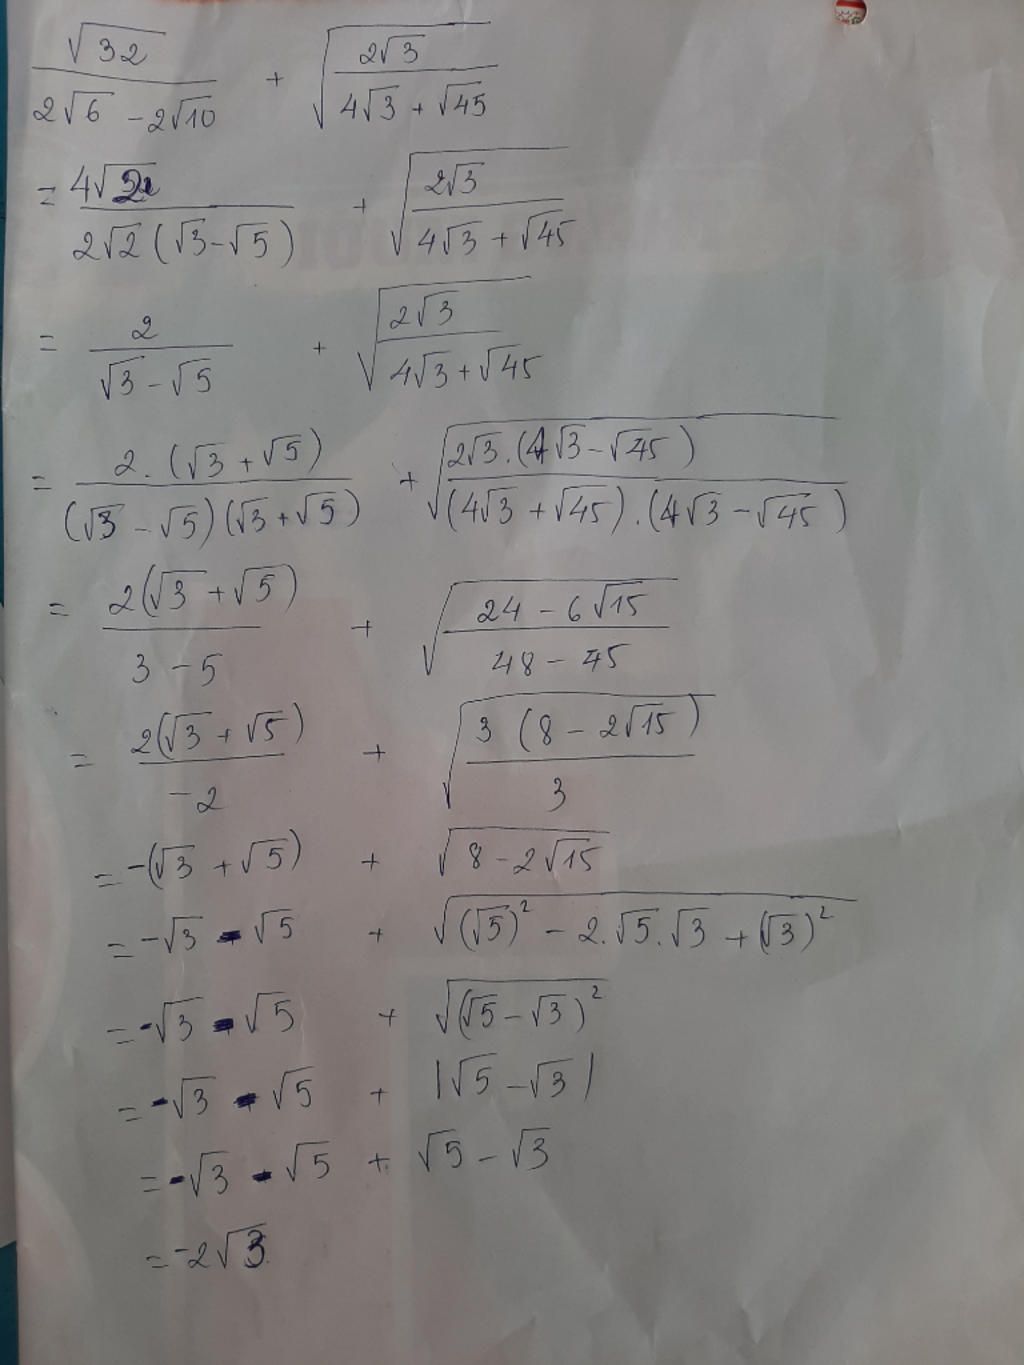 √32/(2√6 - 2√10) + √(2√3/(4√3 + √45))
= 4√2/(2√2(√3 - √5)) + √(2√3/(4√3 + √45))
= 2/(√3 - √5) + √(2√3/(4√3 + √45))
= 2.(√3 + √5)/((√3 - √5)(√3 + √5)) + √(2√3.(4√3 - √45)/((4√3 + √45).(4√3 - √45)))
= 2(√3 + √5)/(3 - 5) + √((24 - 6√15)/(48 - 45))
= 2(√3 + √5)/(-2) + √(3(8 - 2√15)/3)
= -(√3 + √5) + √(8 - 2√15)
= -√3 - √5 + √((√5)² - 2.√5.√3 + (√3)²)
= -√3 - √5 + √((√5 - √3)²)
= -√3 - √5 + |√5 - √3|
= -√3 - √5 + √5 - √3
= -2√3